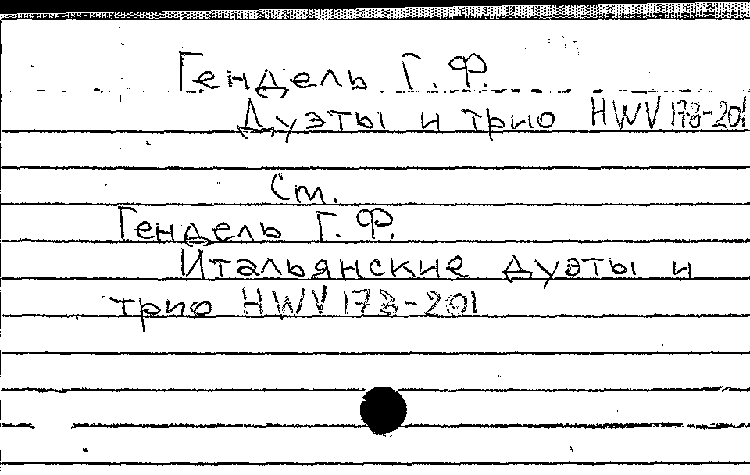 Гендель Г. Ф.
Дуэты и трио HWV 178-201
Ст.
Гендель Г. Ф.
Итальянские дуэты и
трио HWV 178-201